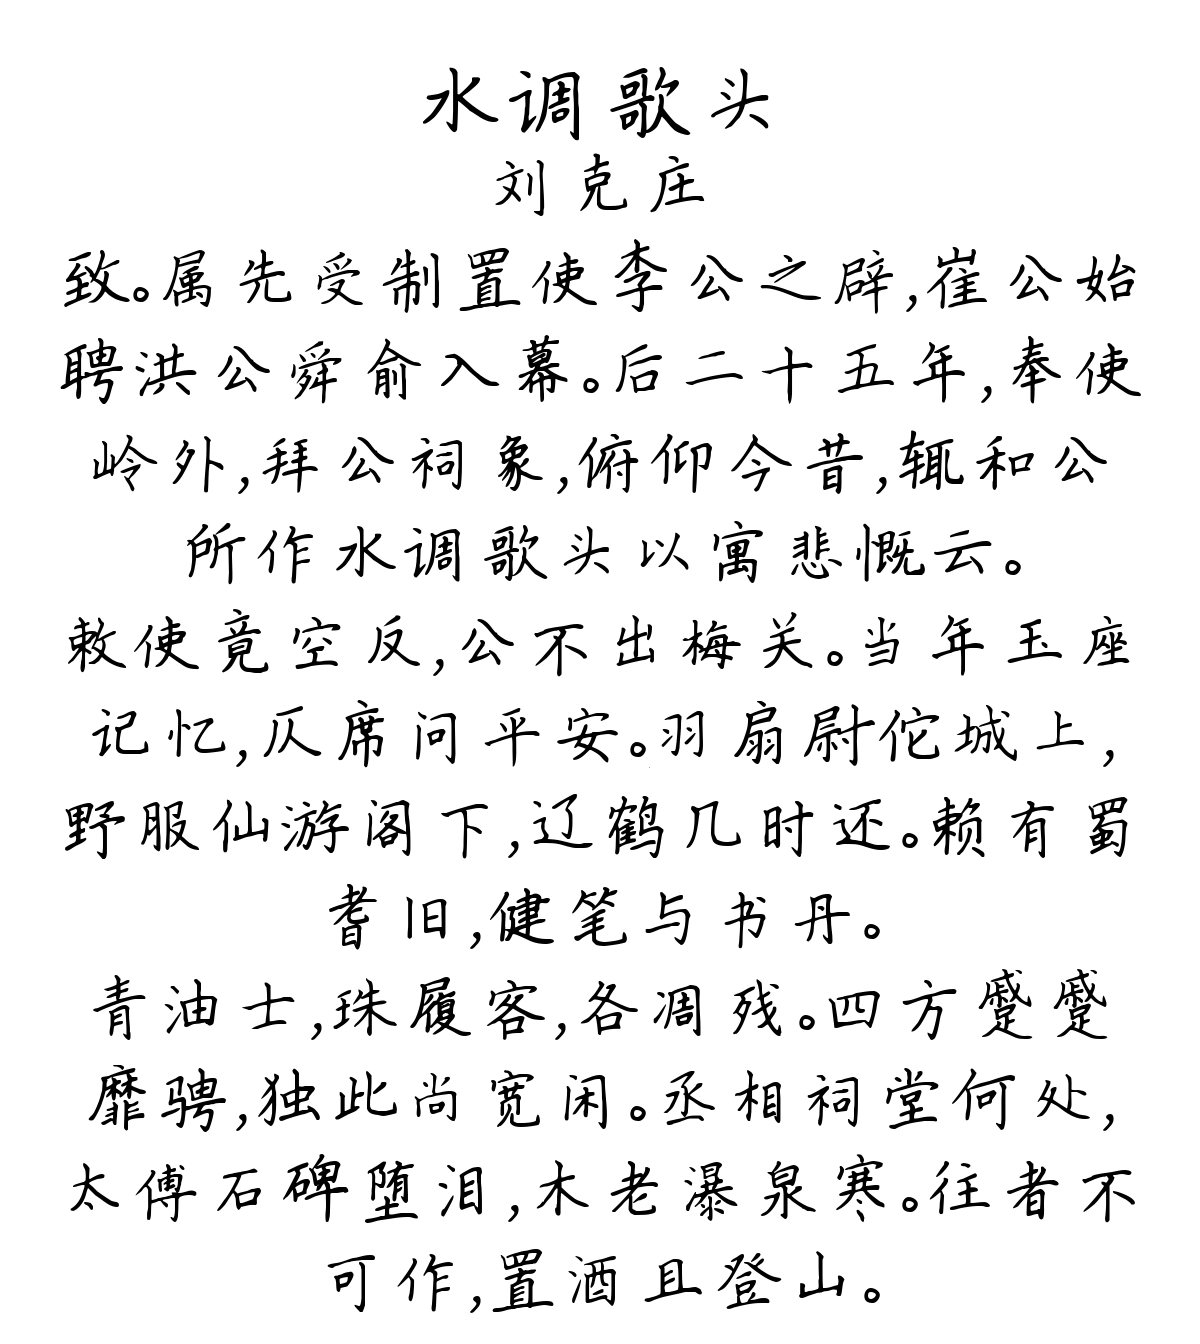 水调歌头
刘克庄
致。属先受制置使李公之辟,崔公始
聘洪公舜俞入幕。后二十五年,奉使
岭外,拜公祠象,俯仰今昔,辄和公
所作水调歌头以寓悲慨云。
敕使竟空反,公不出梅关。当年玉座
记忆,仄席问平安。羽扇尉佗城上,
野服仙游阁下,辽鹤几时还。赖有蜀
耆旧,健笔与书丹。
青油士,珠履客,各凋残。四方蹙蹙
靡骋,独此尚宽闲。丞相祠堂何处,
太傅石碑堕泪,木老瀑泉寒。往者不
可作,置酒且登山。